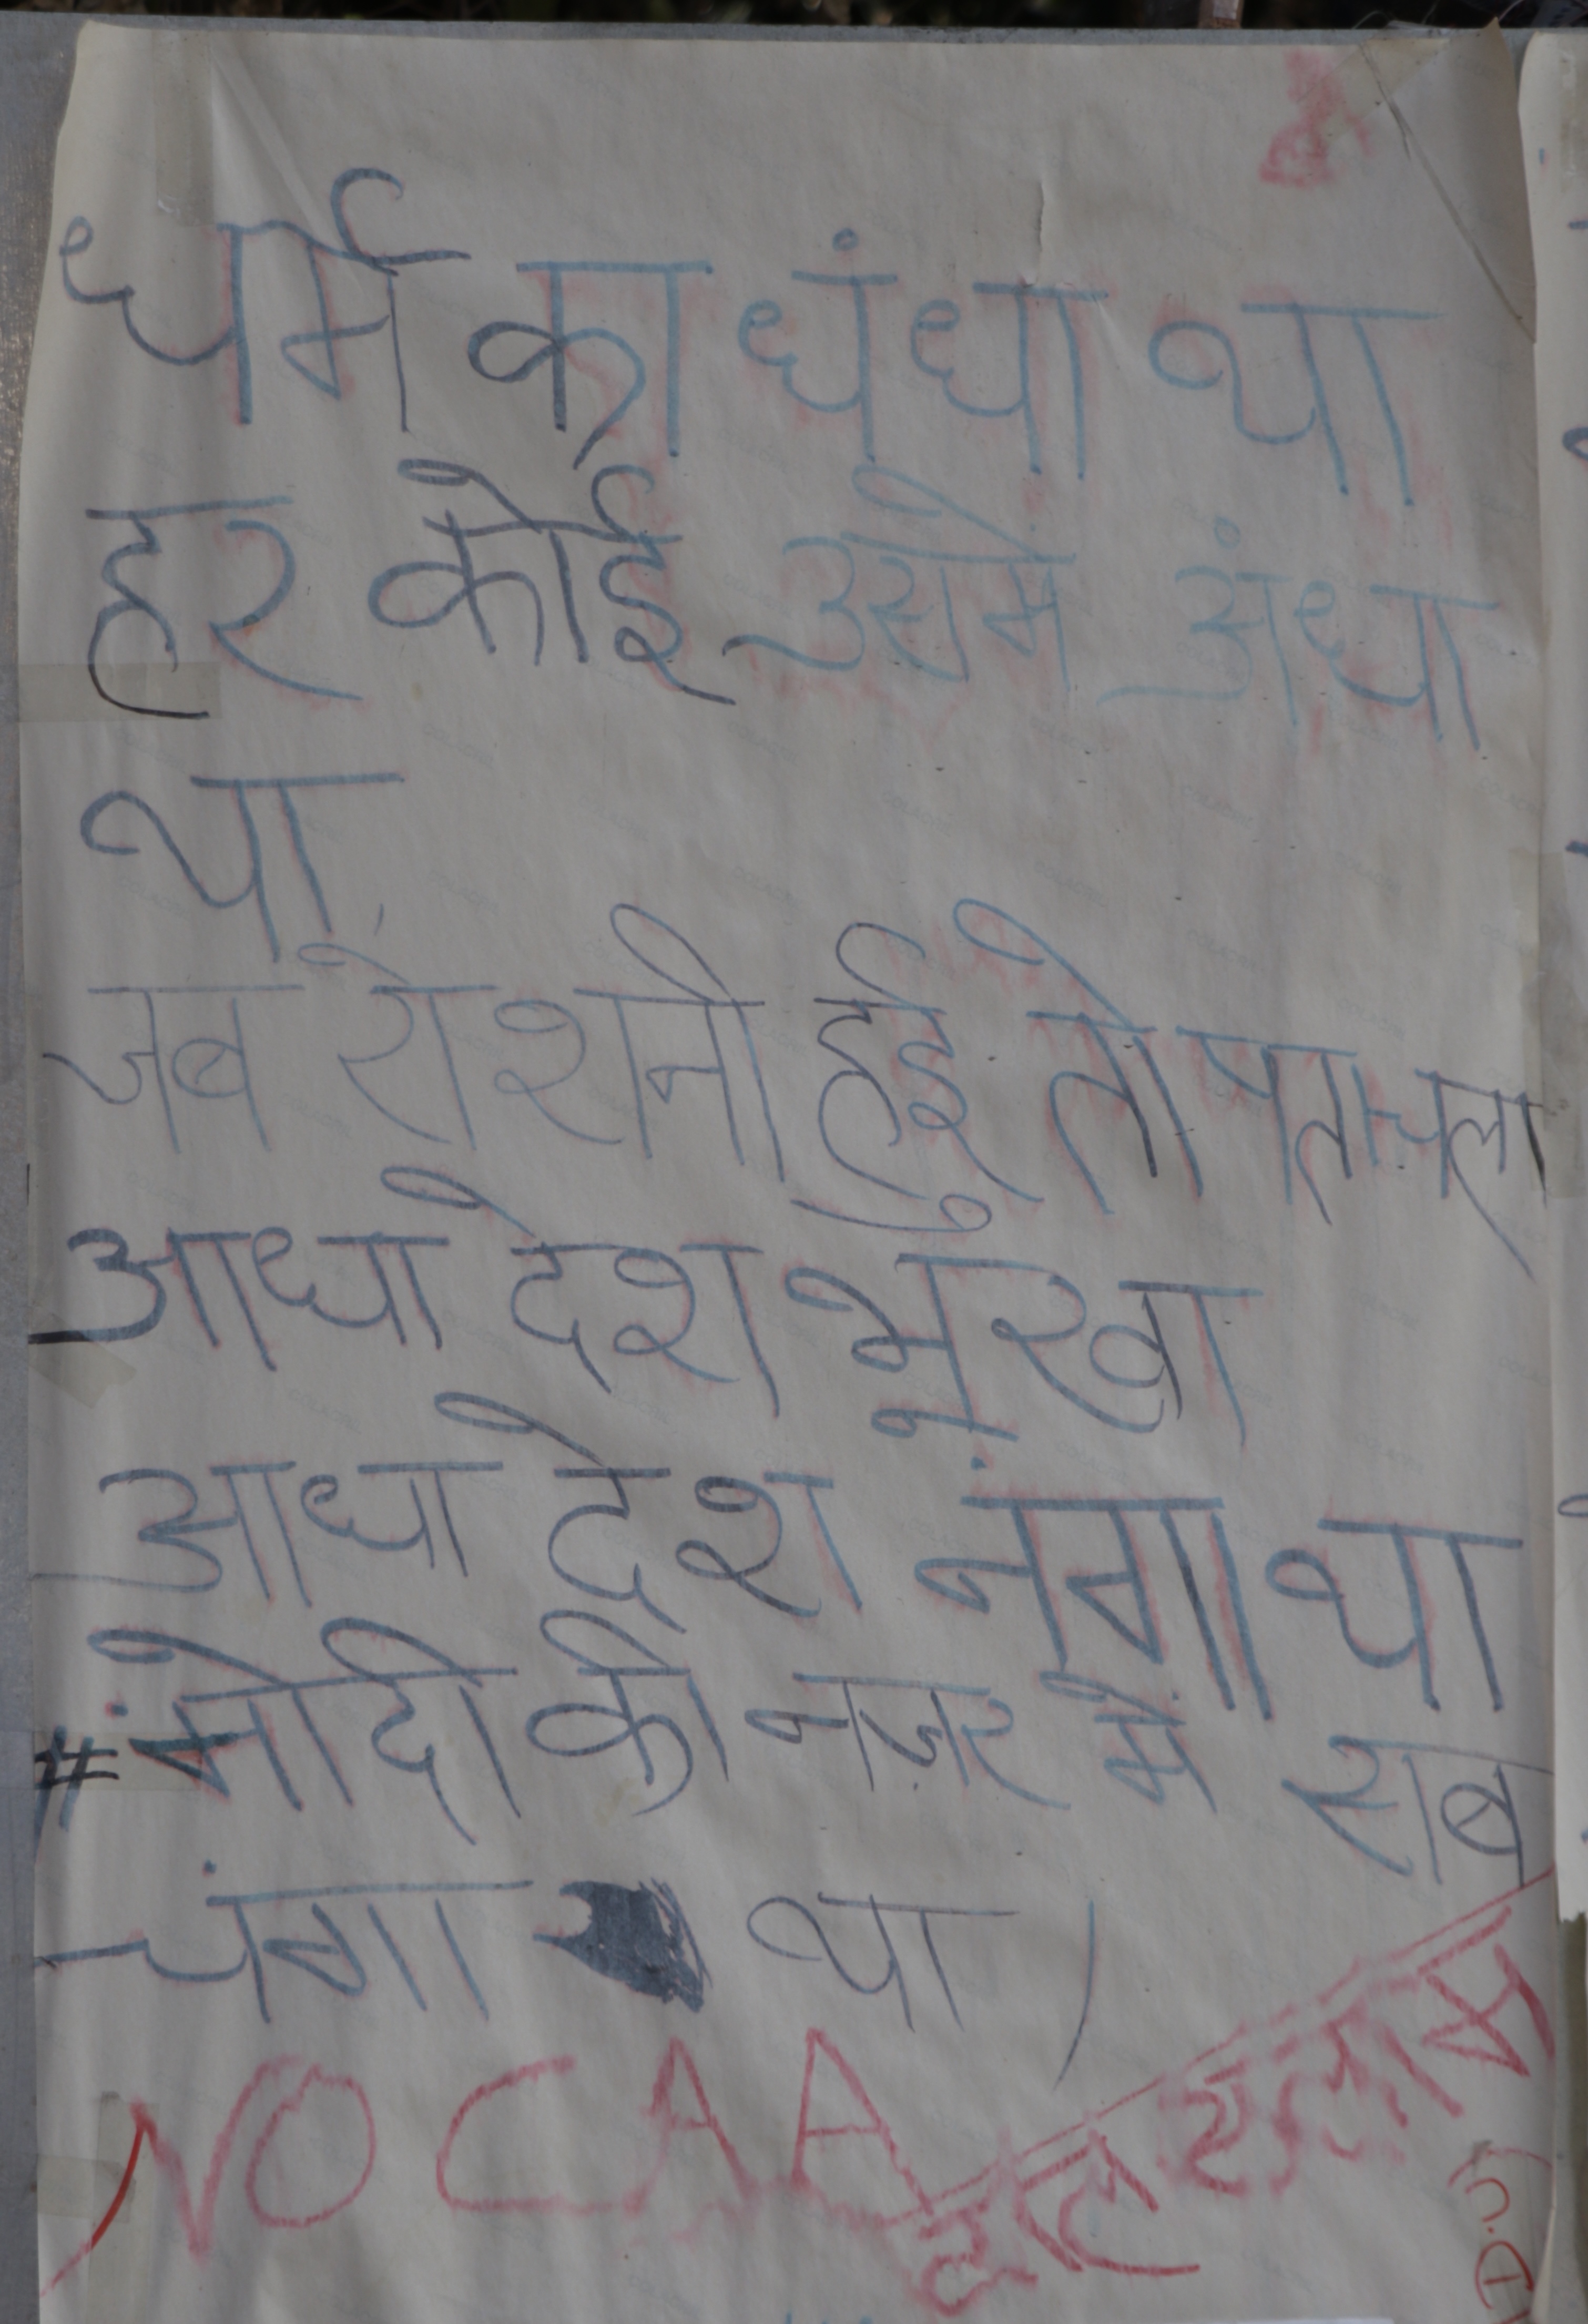 धर्म का धंधा था
हर कोई उसमे अंधा
था,
जब रोशनी हुई तो पता चला
आधा देश भूखा
आधा देश नंगा था
#मोदी की नज़र में सब
चंगा था)
NO CAA
D.U